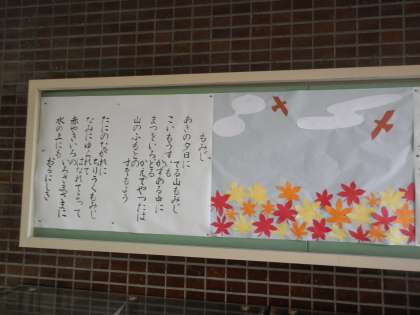 もみじ
あきの夕日に
てる山もみじ
こいもうすいも
かずある中に
まつをいろどる
かえでやつたは
山のふもとの
すそもよう
たにのながれに
ちりうくもみじ
なみにゆられて
はなれてよって
赤やきいろの
いろさまざまに
水の上にも
おるにしき